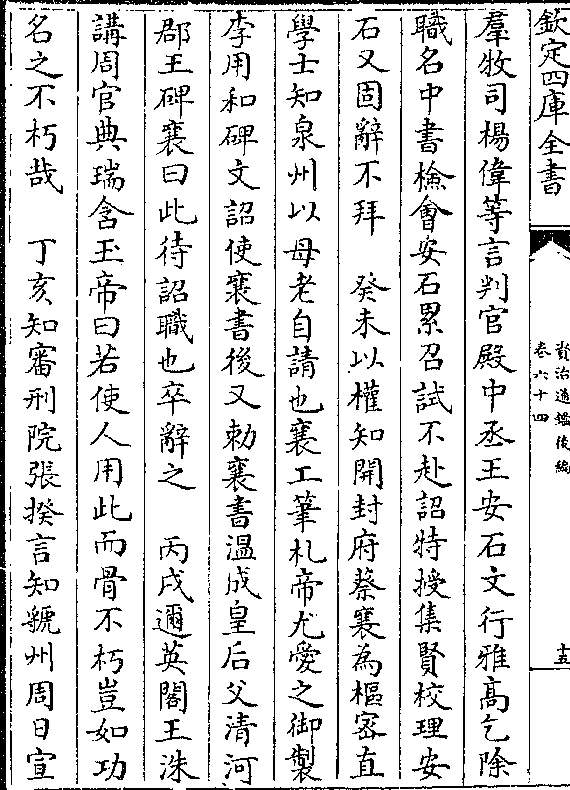 欽定四庫全書
資治通鑑後編
卷六十四
十五
羣牧司楊偉等言判官殿中丞王安石文行雅高乞除
職名中書檢會安石累召試不赴詔特授集賢校理安
石又固辭不拜　癸未以權知開封府蔡襄為樞密直
學士知泉州以母老自請也襄工筆札帝尤愛之御製
李用和碑文詔使襄書後又勅襄書溫成皇后父清河
郡王碑襄曰此待詔職也卒辭之　丙戌邇英閣王洙
講周官典瑞含玉帝曰若使人用此而骨不朽豈如功
名之不朽哉　丁亥知審刑院張揆言知虢州周日宣